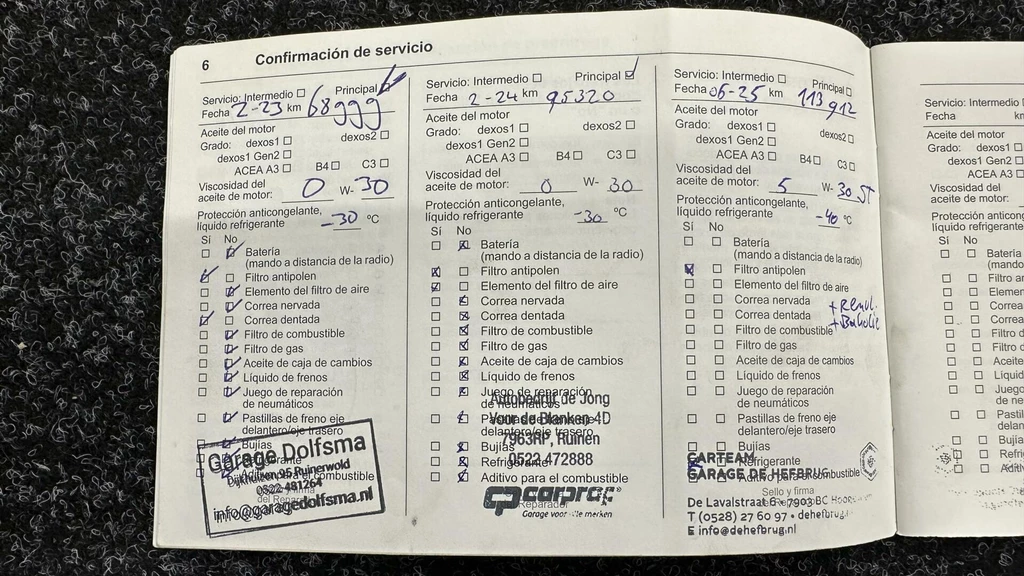 6 Confirmación de servicio
Servicio: Intermedio Principal
Fecha 2-23 km 68999
Aceite del motor
Grado: dexos1 dexos2
dexos1 Gen2
ACEA A3 B4 C3
Viscosidad del
aceite de motor: 0 W- 30
Protección anticongelante,
líquido refrigerante -30 °C
Sí No
Batería
(mando a distancia de la radio)
Filtro antipolen
Elemento del filtro de aire
Correa nervada
Correa dentada
Filtro de combustible
Filtro de gas
Aceite de caja de cambios
Líquido de frenos
Juego de reparación
de neumáticos
Pastillas de freno eje
delantero/eje trasero
Bujías
Garage Dolfsma
Dijkhuizen 95 Ruinerwold
0522 481264
info@garagedolfsma.nl
Servicio: Intermedio Principal
Fecha 2-24 km 95320
Aceite del motor
Grado: dexos1 dexos2
dexos1 Gen2
ACEA A3 B4 C3
Viscosidad del
aceite de motor: 0 W- 30
Protección anticongelante,
líquido refrigerante -30 °C
Sí No
Batería
(mando a distancia de la radio)
Filtro antipolen
Elemento del filtro de aire
Correa nervada
Correa dentada
Filtro de combustible
Filtro de gas
Aceite de caja de cambios
Líquido de frenos
Juego de reparación
de neumáticos
delantero/eje trasero
Bujías
Refrigerante
Aditivo para el combustible
Autobedrijf de Jong
Voor de Blanken 4D
7963RP, Ruinen
0522 472888
carprof
Garage voor alle merken
Servicio: Intermedio Principal
Fecha 06-25 km 113912
Aceite del motor
Grado: dexos1 dexos2
dexos1 Gen2
ACEA A3 B4 C3
Viscosidad del
aceite de motor: 5 W- 30
Protección anticongelante,
líquido refrigerante -40 °C
Sí No
Batería
(mando a distancia de la radio)
Filtro antipolen
Elemento del filtro de aire
Correa nervada
Correa dentada
Filtro de combustible
Filtro de gas
Aceite de caja de cambios
Líquido de frenos
Juego de reparación
de neumáticos
Pastillas de freno eje
delantero/eje trasero
Bujías
Refrigerante
Aditivo para el combustible
Sello y firma
CARTEAM
GARAGE DE HEFBRUG
De Lavalstraat 6 - 7903 BC
T (0528) 27 60 97 • dehefbrug.nl
E info@dehefbrug.nl
Servicio: Intermedio
Fecha
Aceite del motor
Grado: dexos1
dexos1 Gen2
ACEA A3
Viscosidad del
aceite de motor:
Sí No